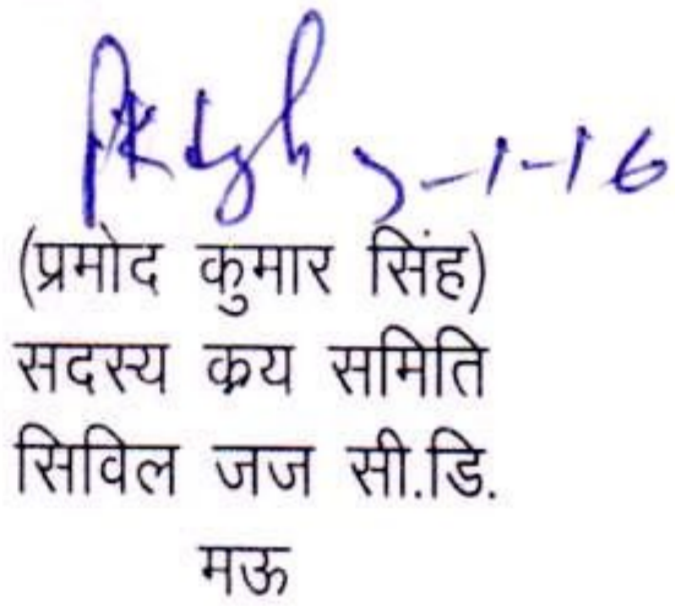 -1-16
(प्रमोद कुमार सिंह)
सदस्य क्रय समिति
सिविल जज सी.डि.
मऊ